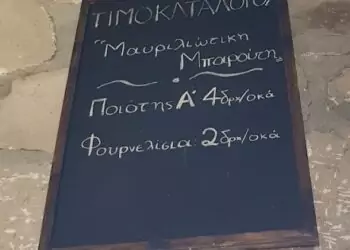 ΤΙΜΟΚΑΤΑΛΟΓΟΣ
"Μαυριλιώτικη
Μπαρούτη"
Ποιότης Α' 4 δρχ/οκά
Φουρνελίσια: 2 δρχ/οκά